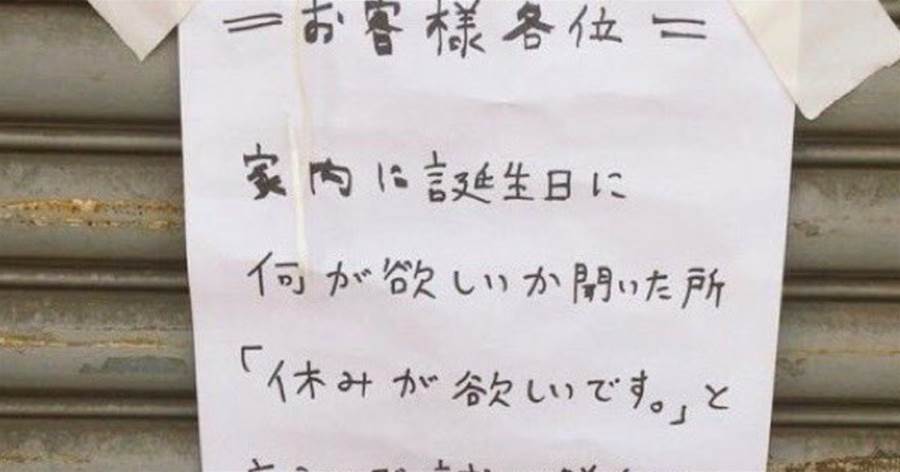 ＝お客様各位＝
家内に誕生日に
何が欲しいか開いた所
「休みが欲しいです。」と